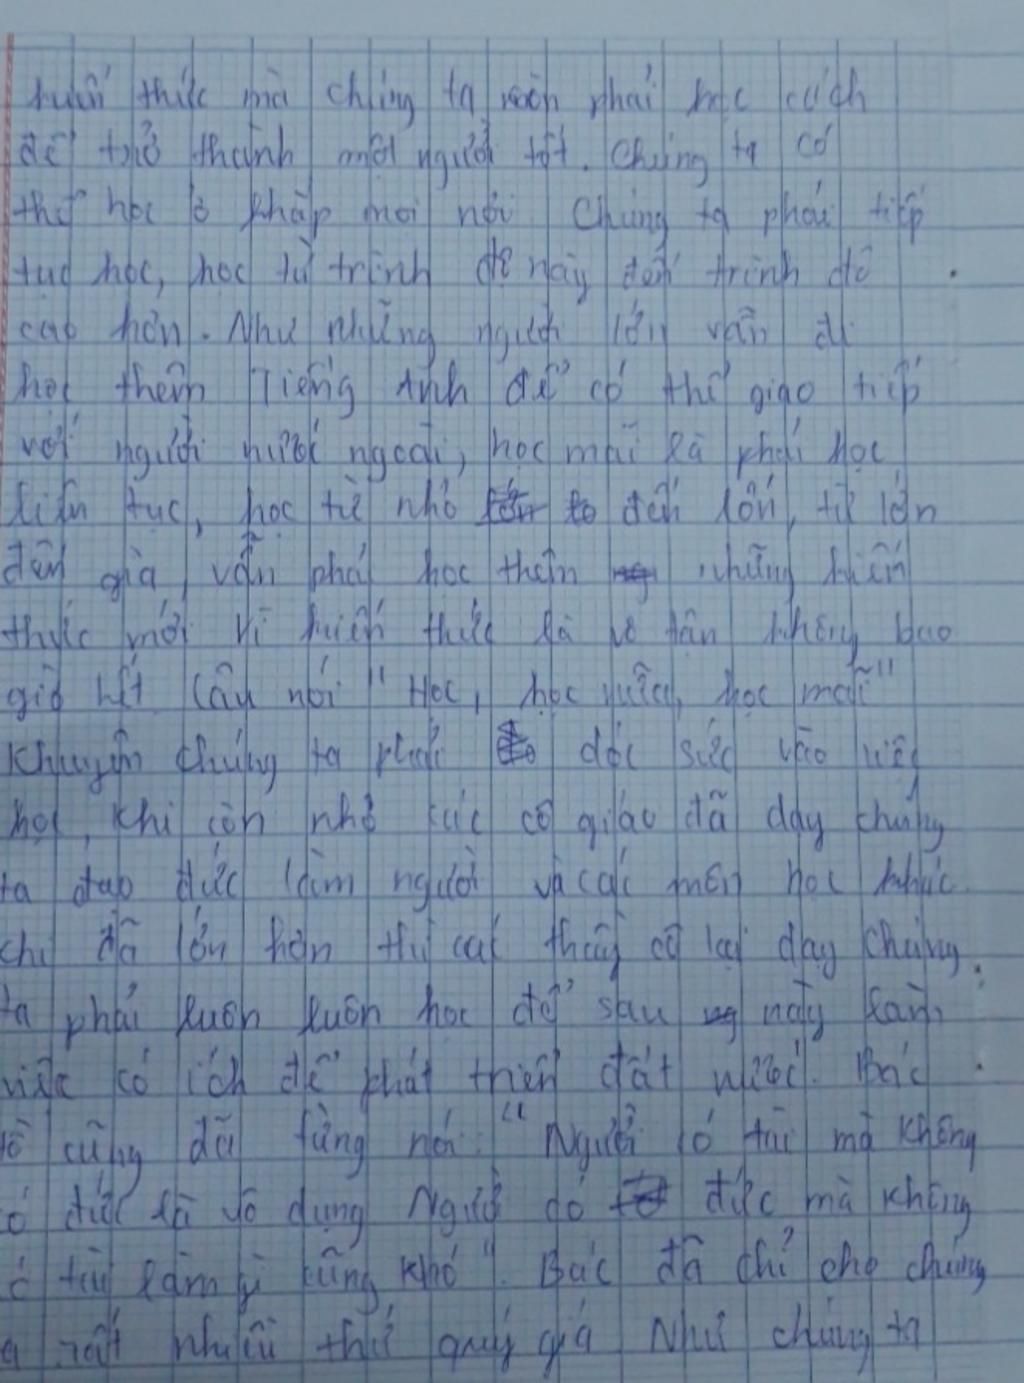 kiến thức mà chúng ta còn phải học cách
để trở thành một người tốt. Chúng ta có
thể học ở khắp mọi nơi Chúng ta phải tiếp
tục học, học từ trình độ này đến trình độ
cao hơn. Như những người lớn vẫn đi
học thêm Tiếng Anh để có thể giao tiếp
với người nước ngoài, học mãi là phải học
liên tục, học từ nhỏ đến lớn, từ lớn
đến già, vẫn phải học thêm những kiến
thức mới vì kiến thức là vô tận không bao
giờ hết Câu nói "Học, học nữa, học mãi"
khuyên chúng ta phải dốc sức vào việc
học, khi còn nhỏ các cô giáo đã dạy chúng
ta đạo đức làm người và các môn học khác.
chi đã lớn hơn thì các thầy cô lại dạy chúng
ta phải luôn luôn học để sau này làm
việc có ích để phát triển đất nước. Bác
Hồ cũng đã từng nói: "Người có tài mà không
có đức là vô dụng Người có đức mà không
có tài làm gì cũng khó". Bác đã chỉ cho chúng
ta rất nhiều thứ quý giá Như chúng ta